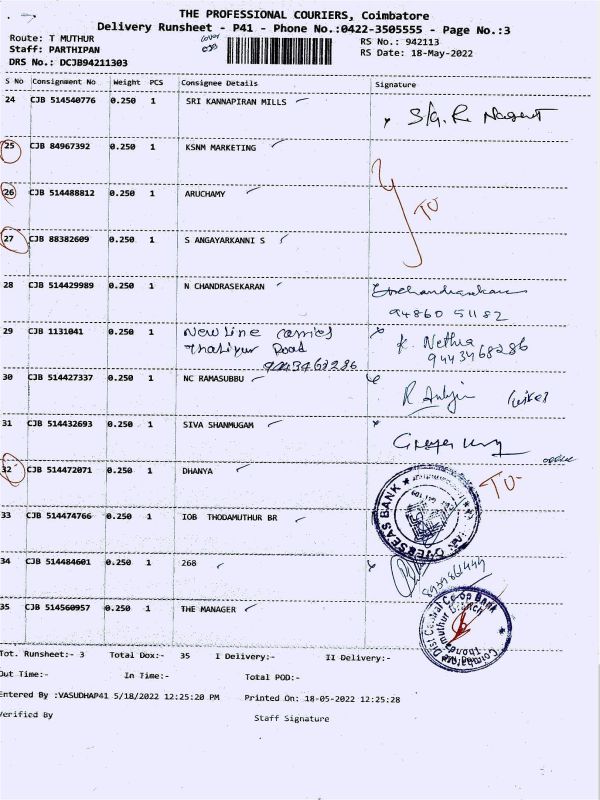 THE PROFESSIONAL COURIERS, Coimbatore
Delivery Runsheet - P41 - Phone No.:0422-3505555 - Page No.:3
Route: T MUTHUR
RS No.: 942113
Staff: PARTHIPAN
RS Date: 18-May-2022
DRS No.: DCJB94211303
S No Consignment No Weight PCS Consignee Details Signature
24 CJB 514540776 0.250 1 SRI KANNAPIRAN MILLS
25 CJB 84967392 0.250 1 KSNM MARKETING
26 CJB 514488812 0.250 1 ARUCHAMY
TO
27 CJB 88382609 0.250 1 S ANGAYARKANNI S
28 CJB 514429989 0.250 1 N CHANDRASEKARAN
94860 51182
29 CJB 1131041 0.250 1 New line
Road
K. Nethra
9443468286
9443468286
30 CJB 514427337 0.250 1 NC RAMASUBBU
31 CJB 514432693 0.250 1 SIVA SHANMUGAM
32 CJB 514472071 0.250 1 DHANYA
TO
OVERSEAS BANK
33 CJB 514474766 0.250 1 IOB THODAMUTHUR BR
34 CJB 514484601 0.250 1 268
35 CJB 514560957 0.250 1 THE MANAGER
Coimbatore Dist Central Co-op Bank
Tot. Runsheet:- 3 Total Dox:- 35 I Delivery:- II Delivery:-
Out Time:- In Time:- Total POD:-
Entered By :VASUDHAP41 5/18/2022 12:25:20 PM Printed On: 18-05-2022 12:25:28
Verified By Staff Signature